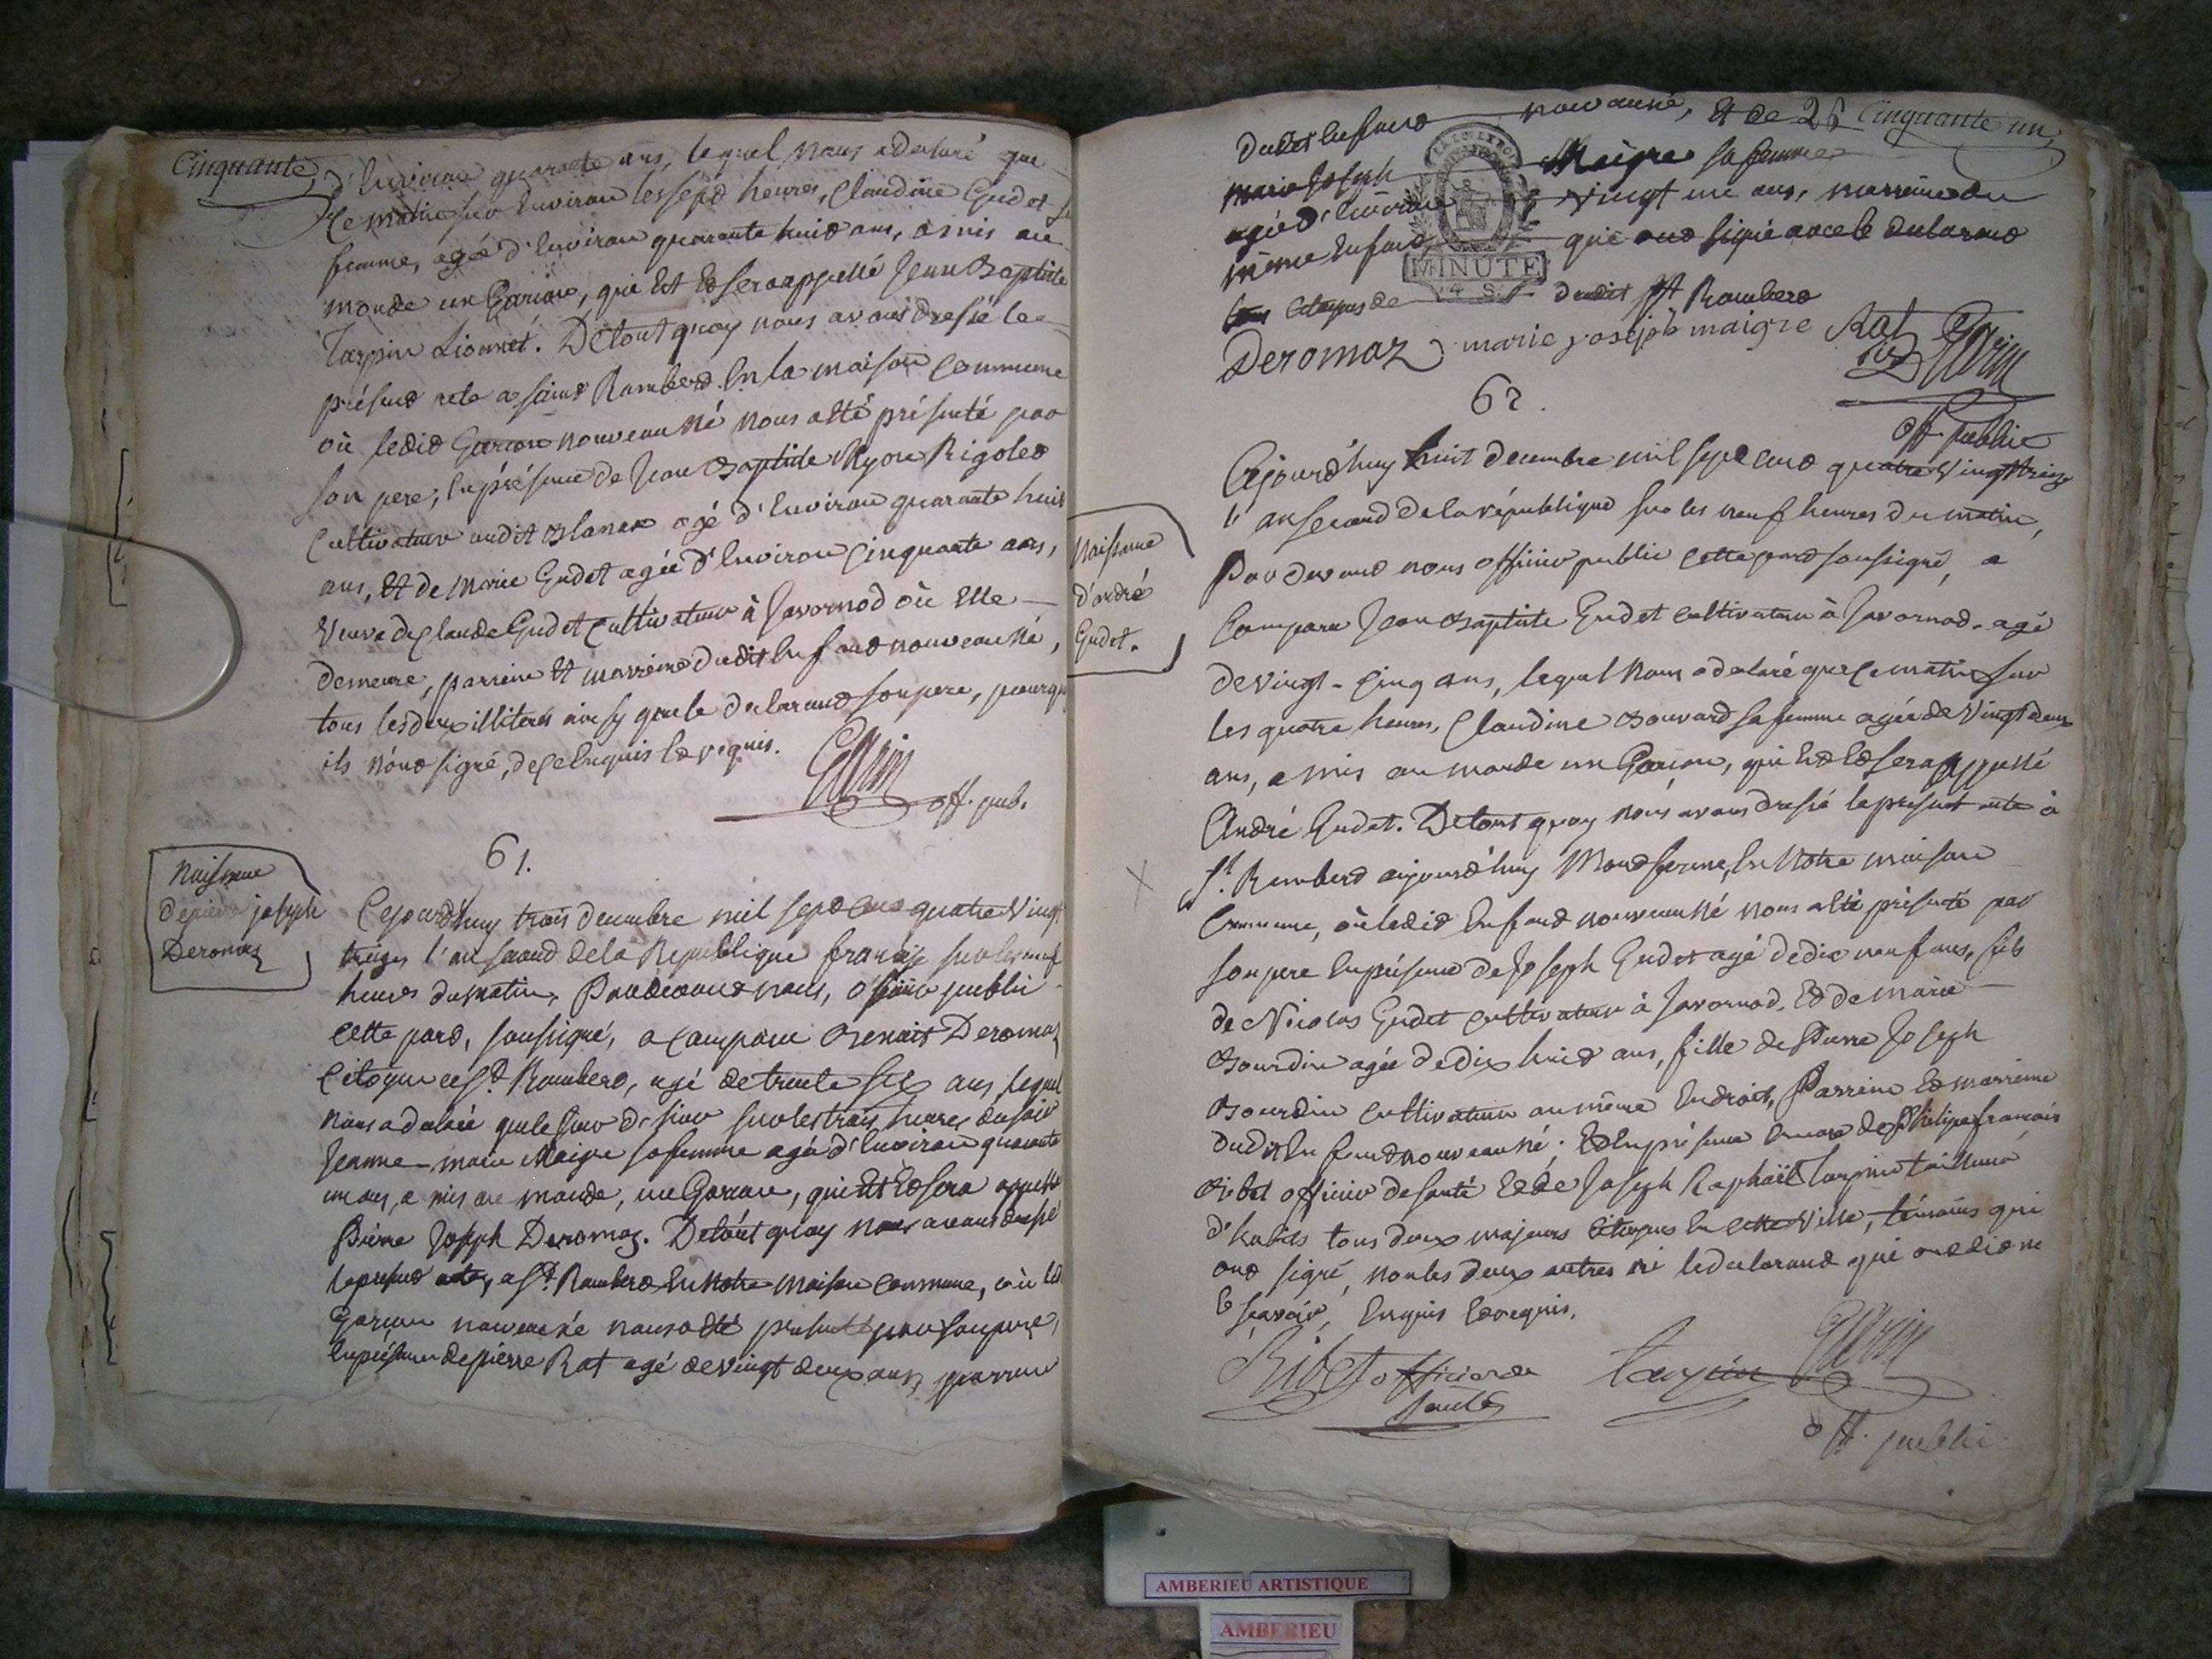 Cinquante
d'environ quarante ans, lequel nous a declaré que
ce matin sur environ les sept heures, Claudine Gudet sa
femme, agée d'environ quarante huit ans, a mis au
monde un Garçon, qui Est Et sera appellé Jean Baptiste
Tarpin Lionnet. De tout quoy nous avons dressé le
présent acte a saint Rambert En la maison Commune
où ledit Garçon nouveau né nous a été présenté par
son pere, En présence de Jean Baptiste Rigolet
Cultivateur audit Blanaz agé d'Environ quarante huit
ans, Et de Marie Gudet agée d'Environ Cinquante ans,
Veuve de Claude Gudet Cultivateur à Javornod où Elle
demeure, parrein Et marreine dudit Enfant nouveau né,
tous les deux illiterés ainsy que le declarant son pere, pourquoy
ils n'ont signé, de ce Enquis Et requis.
off. pub.
61.
Naissance
de pierre joseph
Deromaz
Cejourdhuy trois decembre mil sept cens quatre Vingt
treize l'an second de la Republique francaise sur les neuf
heures du matin, Pardevant nous, officier public
Cette part, soussigné, a Comparu Benoit Deromaz
Citoyen de St. Rambert, agé de trente six ans lequel
nous a declaré que le jour d'hier sur les trois heures du soir
Jeanne-marie Maigre sa femme agée d'Environ quarante
un ans, a mis au monde, un Garçon, qui Est Et sera appellé
Pierre Joseph Deromaz. De tout quoy nous avons dressé
le present acte, a St. Rambert En Notre Maison Commune, où led.
Garçon nouveau né nous a été presenté par son pere,
En présence de pierre Rat agé de vingt deux ans, parrein
Cinquante un
dudit Enfant nouveau né, Et de
marie Joseph Maigre sa femme
agée d'Environ vingt un ans, marreine du
même Enfant, qui ont signé avec le declarant
MINUTE
4 S.
Citoyens de dudit St Rambert
Deromaz marie joseph maigre Rat
off. public
62.
Naissance
d'andré
Gudet.
Cejourd'huy huit decembre mil sept cent quatre Vingt treize
l'an second de la république sur les neuf heures du matin,
Par devant nous officier public Cette part soussigné, a
Comparu Jean Baptiste Gudet Cultivateur à Javornod, agé
de vingt-cinq ans, lequel Nous a declaré que ce matin sur
les quatre heures, Claudine Bouvard sa femme agée de Vingt deux
ans, a mis au monde un Garçon, qui Est Et sera appellé
André Gudet. De tout quoy nous avons dressé le présent acte à
St. Rambert aujourd'huy Montferme, En Notre maison
Commune, où ledit Enfant nouveau né nous a été présenté par
son pere En présence de Joseph Gudet agé de dix neuf ans, fils
de Nicolas Gudet Cultivateur à Javornod. Et de marie
Bourdin agée de dix huit ans, fille de Pierre Joseph
Bourdin Cultivateur au même Endroit, Parrein Et marreine
dudit Enfant nouveau né; Et En présence Encore de Philipe françois
Ribet officier de santé Et de Joseph Raphaël Tarpin tailleur
d'habits tous deux majeurs Citoyens En cette Ville, témoins qui
ont signé, non les deux autres ni le declarant qui ont dit ne
le sçavoir, Enquis Et requis.
Ribet officier de
santé
tarpin
off. public
AMBERIEU ARTISTIQUE
AMBERIEU